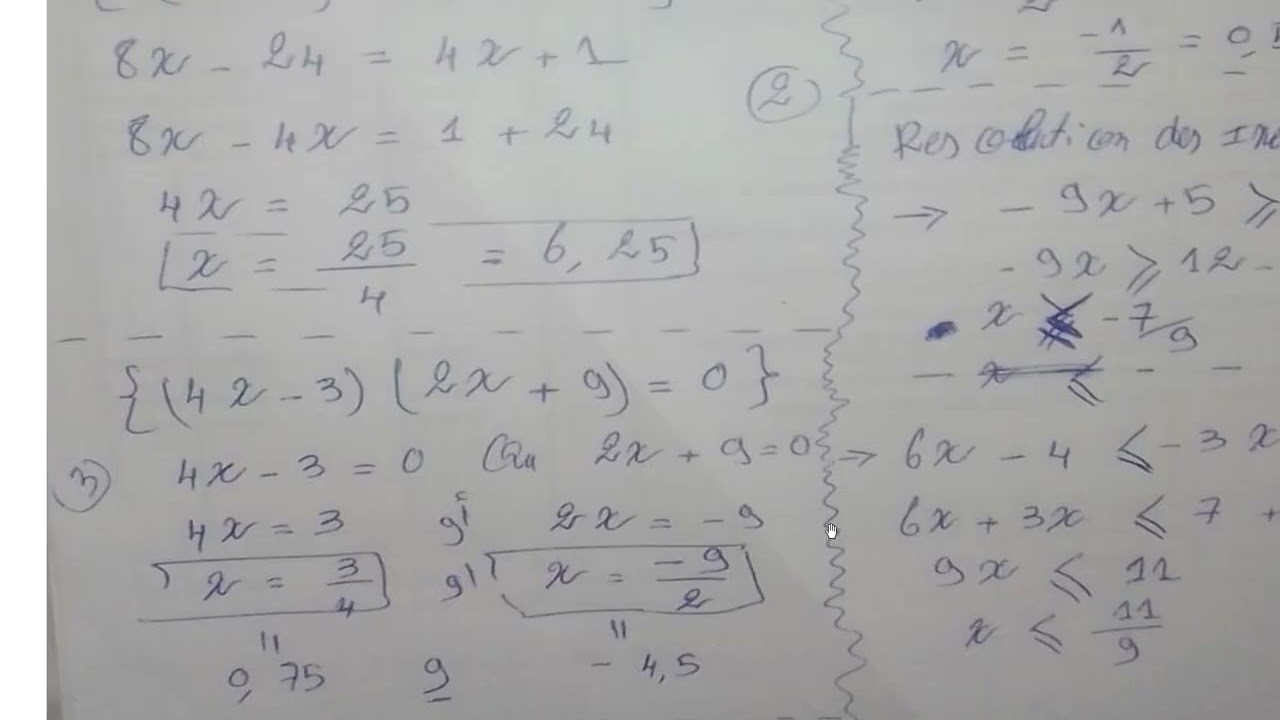 8x - 24 = 4x + 1
8x - 4x = 1 + 24
4x = 25
x = 25/4 = 6,25
{(4x - 3) (2x + 9) = 0}
3
4x - 3 = 0 Ou 2x + 9 = 0
4x = 3 أو 2x = -9
x = 3/4 أو x = -9/2
= =
0,75 و -4,5
x = -1/2 =
2
Resolution des
→ - 9x + 5 ⩾
- 9x ⩾ 12 -
x ⩽ -7/9
→ 6x - 4 ⩽ - 3x
6x + 3x ⩽ 7 +
9x ⩽ 11
x ⩽ 11/9